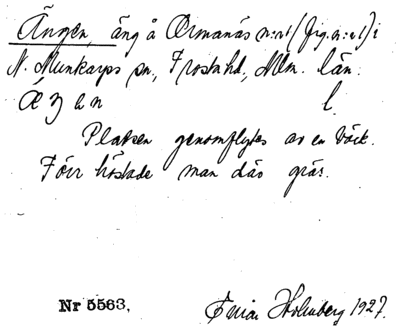 Ängen, äng å Ormanäs n:o1 (fig. n:o1) i
N. Munkarps sn, Frosta hd, Mlm. län.
l.
Platsen genomflytes av en bäck.
Förr höstade man där gräs.
Nr 5563, Holmberg 1927.